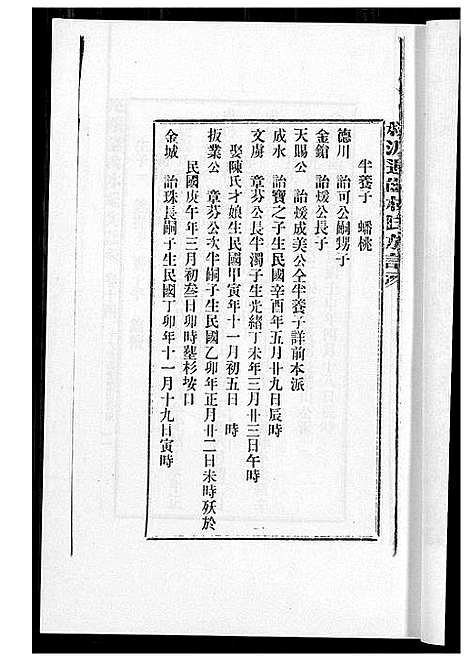 半養子　蟠桃
德川　詒可公嗣甥子
金鎗　詒煖公長子
天賜公　詒煖成美公全半養子詳前本派
成水　詒寶之子生民國辛酉年五月廿九日辰時
文虜　章芬公長半濁子生光緒丁未年三月廿三日午時
娶陳氏才娘生民國甲寅年十一月初五日　時
扳業公　章芬公次半嗣子生民國乙卯年正月廿二日未時歿於
民國庚午年三月初叁日卯時塟杉垵口
金城　詒珠長嗣子生民國丁卯年十一月十九日寅時